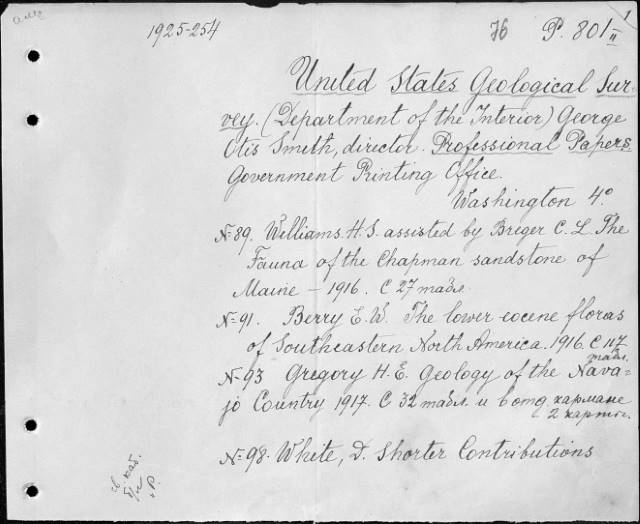 1925-254 76 P. 801 II 1
United States Geological Sur-
vey. (Department of the Interior) George
Otis Smith, director. Professional Papers.
Government Printing Office.
Washington 4°.
№ 89. Williams. H. S. assisted by Breger C. L. The
Fauna of the Chapman sandstone of
Maine – 1916. С 27 табл.
№ 91. Berry E. W. The lower eocene floras
of Southeastern North America. 1916. С 117
табл.
№ 93 Gregory H. E. Geology of the Nava=
jo Country 1917. С 32 табл. и в отд кармане
2 карты.
№ 98. White, D. Shorter Contributions
каб.